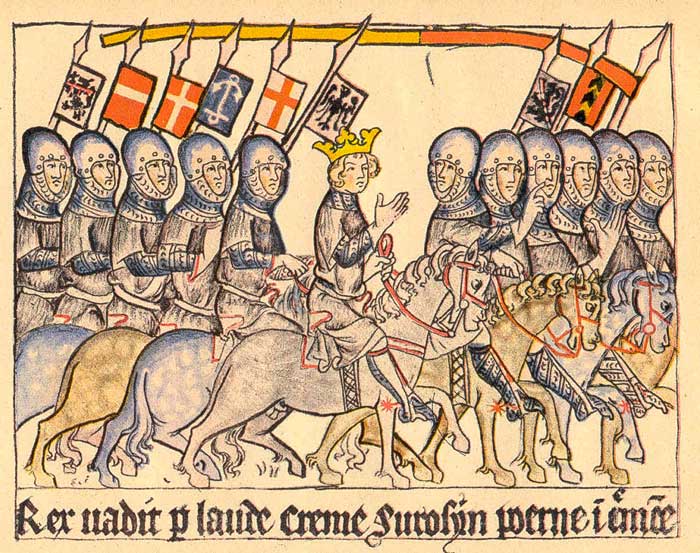 Rex uadit p laude creme Surosyn poerne i